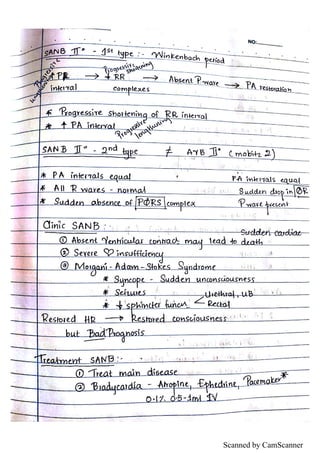 NO:
SANB II° - 1st type :- Winkenbach period
Progressive lengthening
Progressive shortening
↑ PR → ↓ RR → Absent P wave → PA restoration
interval complexes
* Progressive shortening of RR interval
* ↑ PA interval Progressive lengthening
SANB II° - 2nd type ≠ AVB II° (mobitz 2)
* PA intervals equal PA intervals equal
* All R waves - normal Sudden drop in QR
* Sudden absence of PQRS complex P wave present
Clinic SANB :- Sudden cardiac
① Absent Ventricular contract may lead to death
② Severe ♡ insufficiency
③ Morgani - Adam - Stokes Syndrome
* Syncope - Sudden unconsiousness
* Seizures Urethral, UB
* ↓ sphincter funcn Rectal
Restored HR → Restored consciousness
but Bad Prognosis
Treatment SANB :-
① Treat main disease
② Bradycardia - Atropine, Ephedrine, Pacemaker *
0.1% 0.5-1ml IV
Scanned by CamScanner